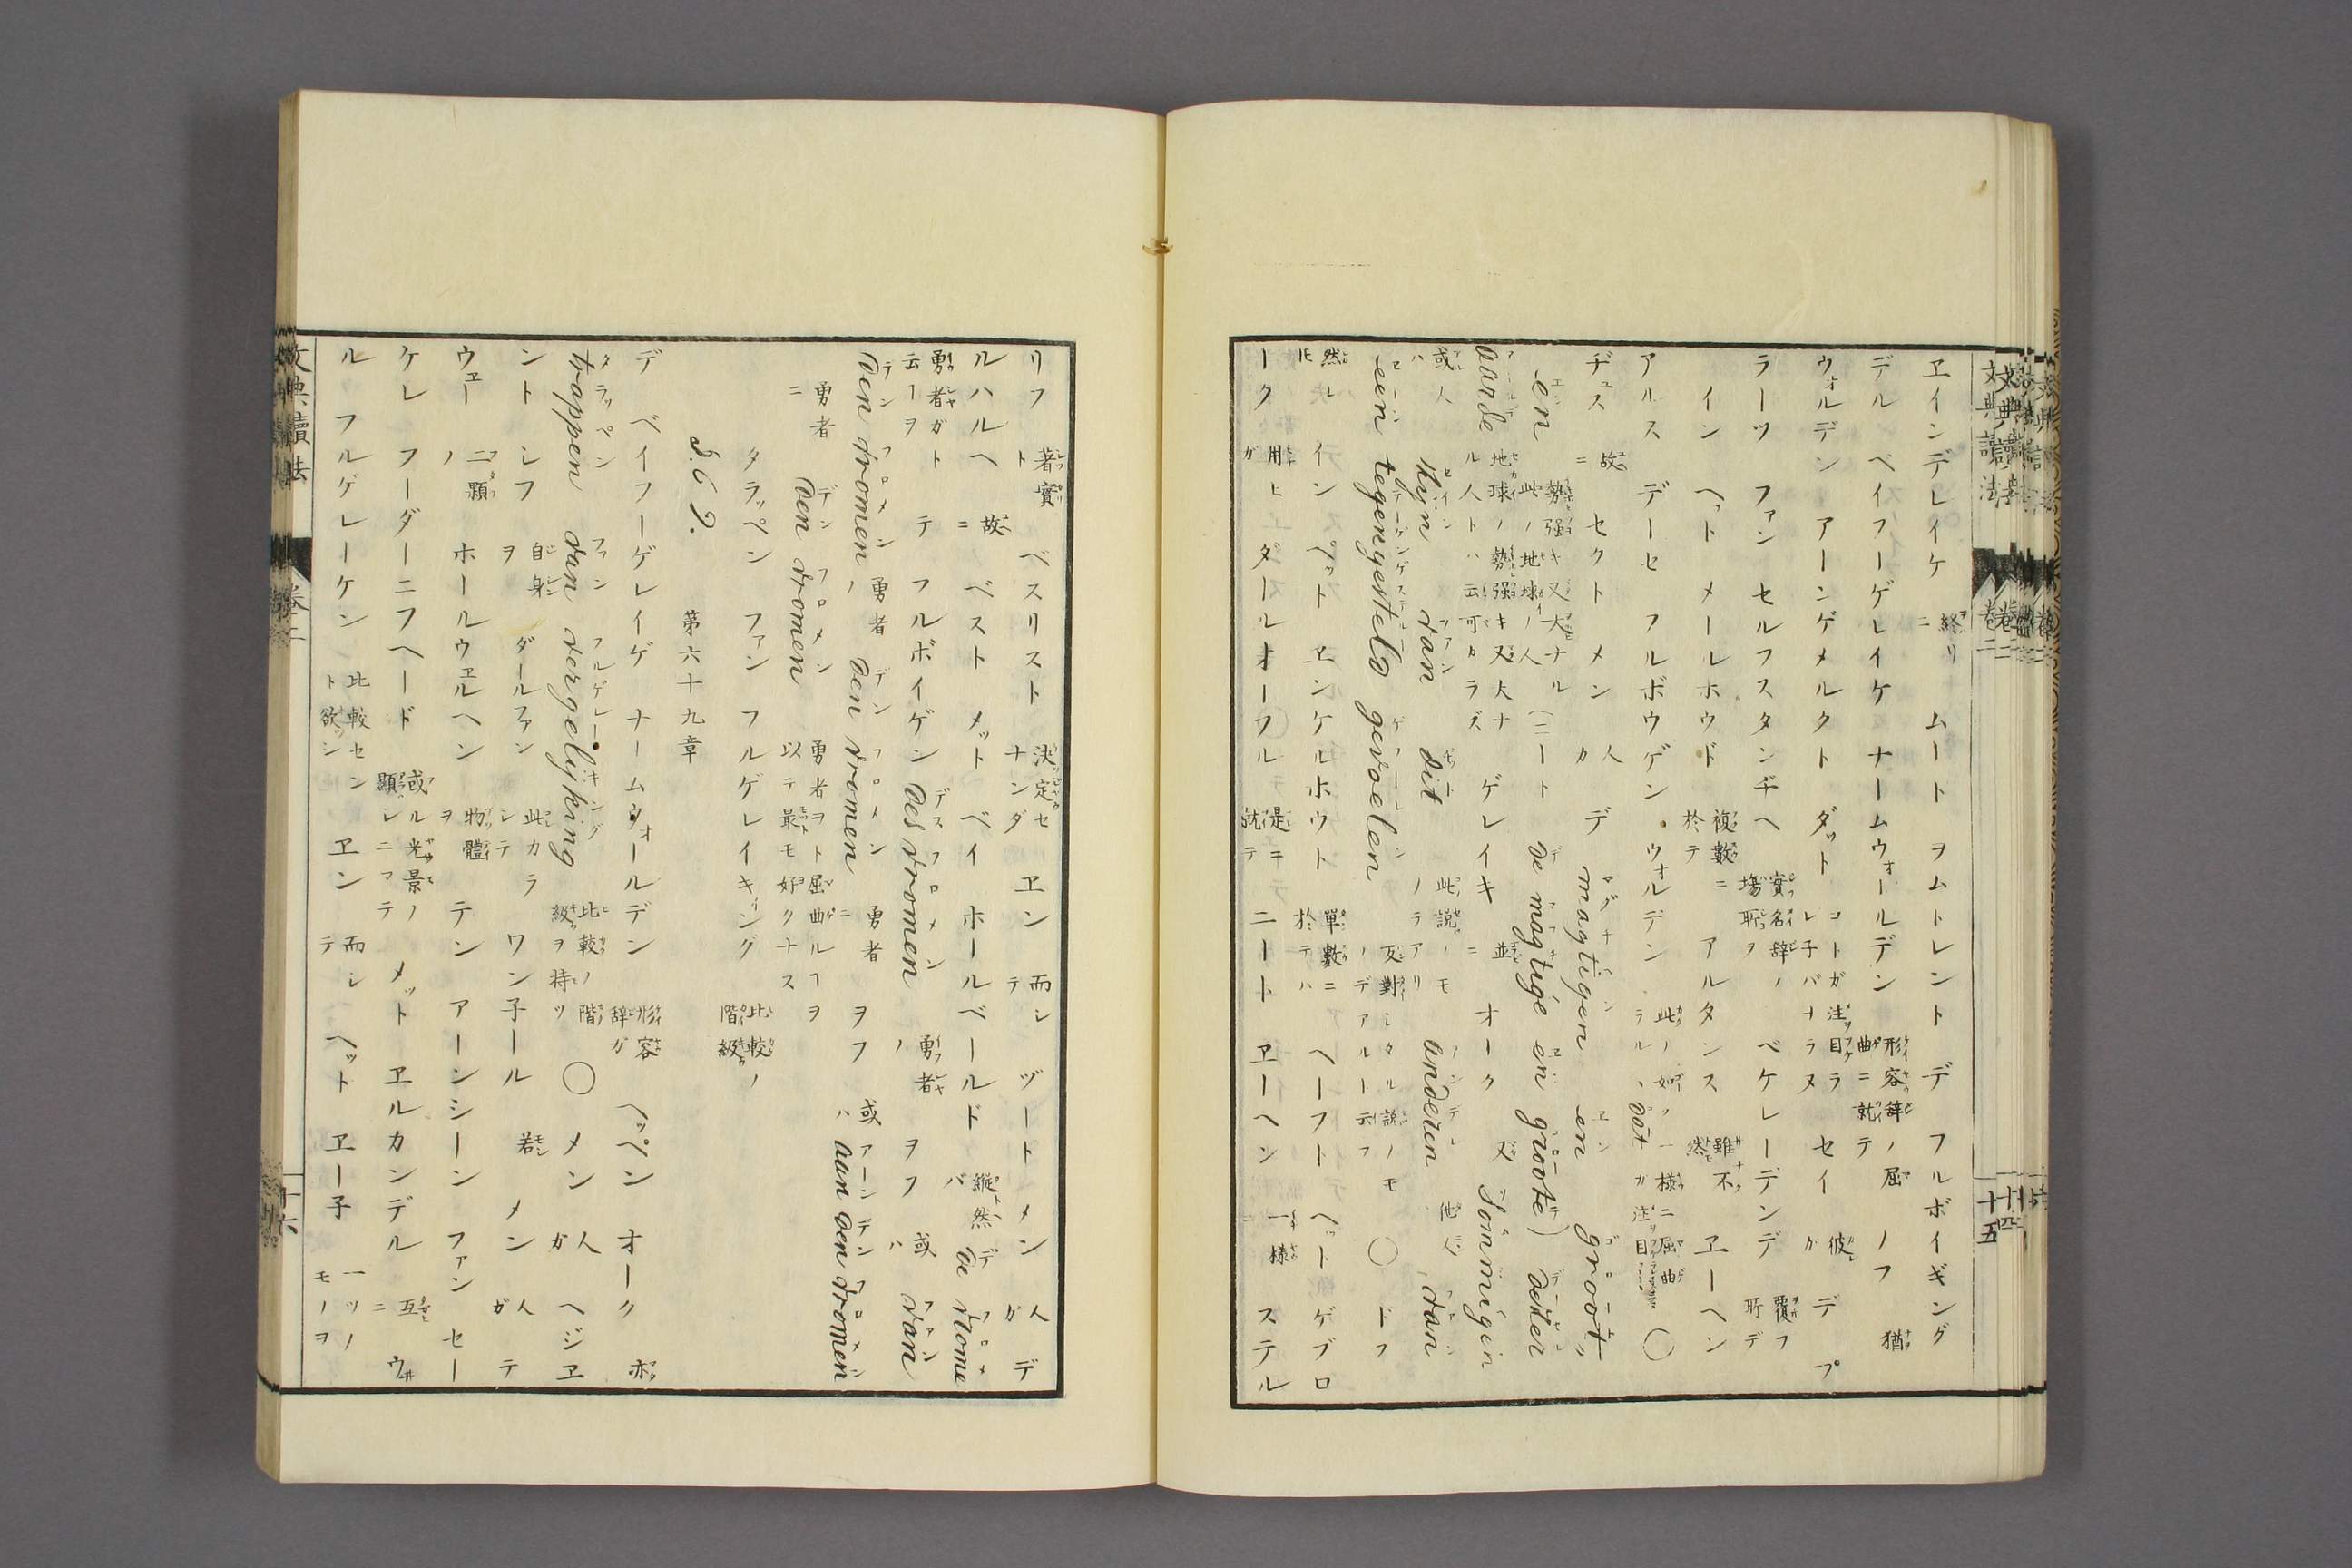 文典讀法 卷二 十五
ヱインデレイケ 終リニ ムート ヲムトレント デ フルボイギング
デル ベイフーゲレイケ ナームウォールデン 形容辞ノ屈曲ニ就テ ノフ 猶
ウォルデン アーンゲメルクト ダット コトガ注目ラレ子バナラヌ セイ 彼ガ デ プ
ラーツ ファン セルフスタンヂヘ 實名辞ノ塲所ヲ ベケレーデンデ 覆フ所デ
イン ヘット メールホウド 複數ニ於テ アルタンス 雖不然 ヱーヘン
アルス デーセ フルボウゲン ウォルデン 此ノ如ノ一様ニ屈曲ラル、 ○
ヂュス 故ニ セクト メン 人カ デ magtigen en groot
en 勢强キ又大ナル此ノ地球ノ人 (ニート de magtige en groote) dezer
aarde 地球ノ勢强キ又大ナル人トハ云可カラズ ゲレイキ 並ニ オーク 又 Sommigen
或人ハ zijn van dit 此ノ説ノモノラアリ anderen 他人ハ van
een tegengesteld gevoelen 反對シタル説ノモノデアルト云フ ○ ドフ
然レ𪜈 イン ヘット ヱンケルホウト 單數ニ於テハ ヘーフト ヘット ゲブロ
ーク 用ヒガ ダールオーフル 是ニ就テ ニート ヱーヘン 一様ニ ステル
リフ 著實ト ベスリスト 決定セナンダ ヱン 而シテ ヅート メン 人ガ デ
ルハルヘ 故ニ ベスト メット ベイ ホールベールド 縱然バ de vrome
勇者ガト云ヿヲ テ フルボイゲン des vromen 勇者ノ ヲフ 或ハ van
den vromen 勇者ノ den vromen 勇者ニ ヲフ 或ハ aan den vromen
勇者ニ den vromen 勇者ヲト屈曲ルヿヲ以テ最モ好クナス
タラッペン ファン フルゲレイキィング 比較ノ階級
§.69. 第六十九章
デ ベイフーゲレイゲ ナームウォールデン 形容辞ガ ヘッペン オーク 亦
trappen van vergelijking 比較ノ階級ヲ持ツ ○ メン 人ガ ヘジヱ
ント シフ 自身ヲ ダールファン 此カラシテ ワン子ール 若シ メン 人ガ テ
ウェー 二顆ノ ホールウェルヘン 物體ヲ テン アーンシーン ファン セー
ケレ フーダーニフヘード 或ル光景ノ顯レニマテ メット ヱルカンデル 互ニ ウヰ
ル フルゲレーケン 比較セント欲シ ヱン 而シテ ヘット ヱー子 一ツノモノヲ
文典讀法 卷二 十六